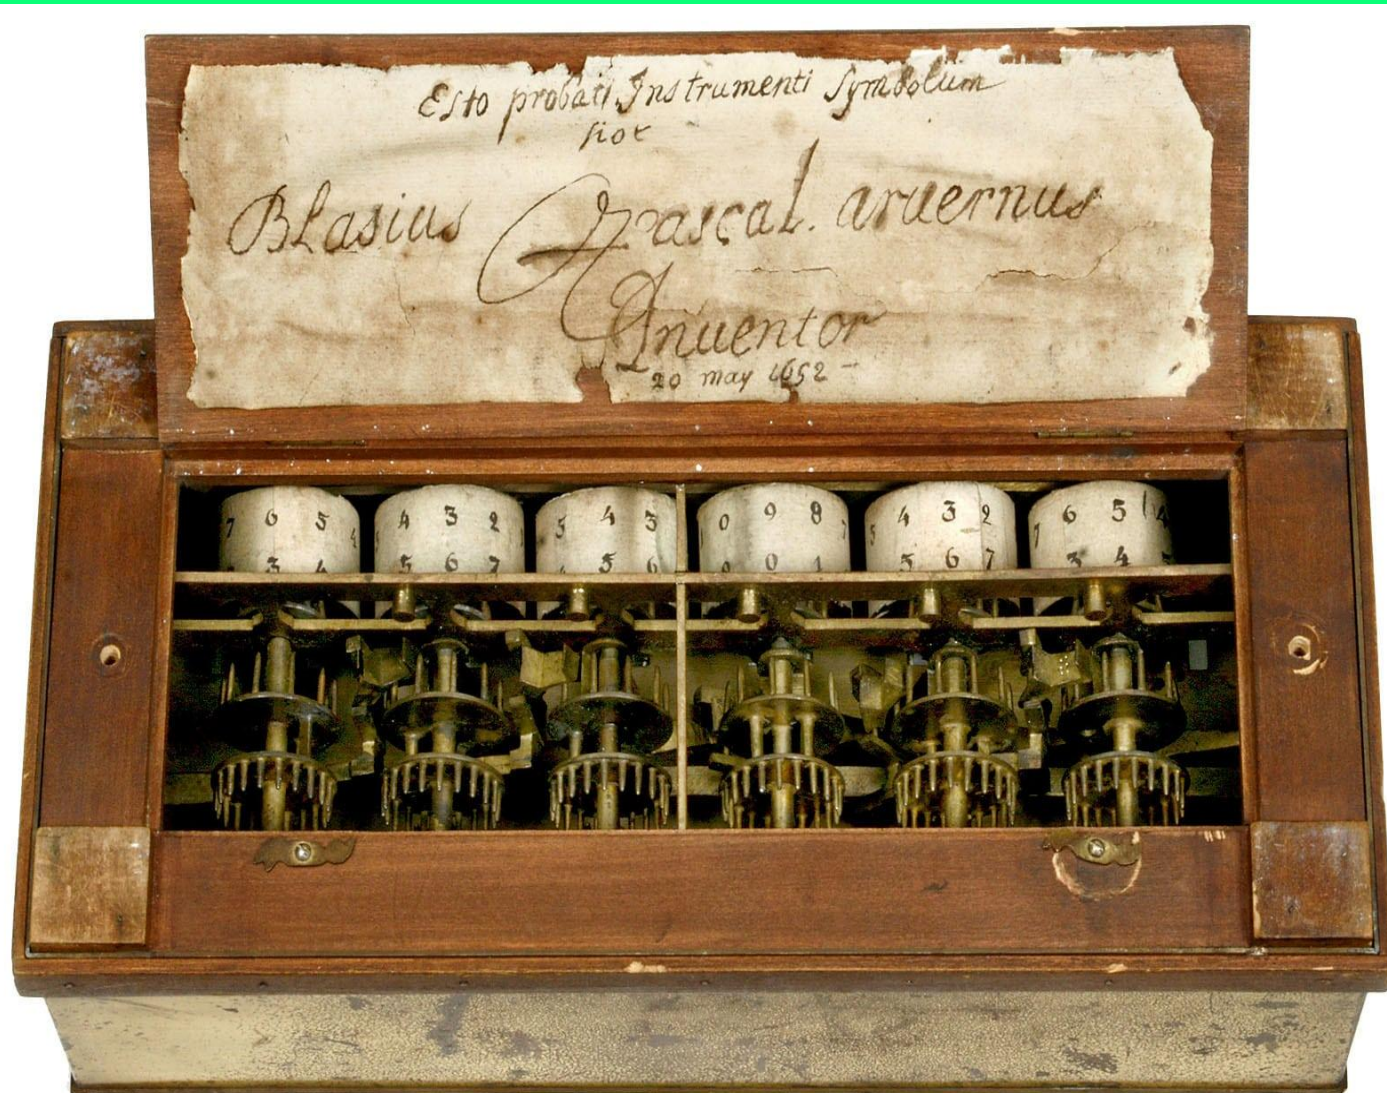 Esto probati Instrumenti Symbolum
hoc
Blasius Pascal. aruernus
Inuentor
20 may 1652
7 6 5 4 3 2 5 4 3 0 9 8 7 5 4 3 2 7 6 5 4
3 4 5 6 7 5 6 0 1 5 6 7 3 4